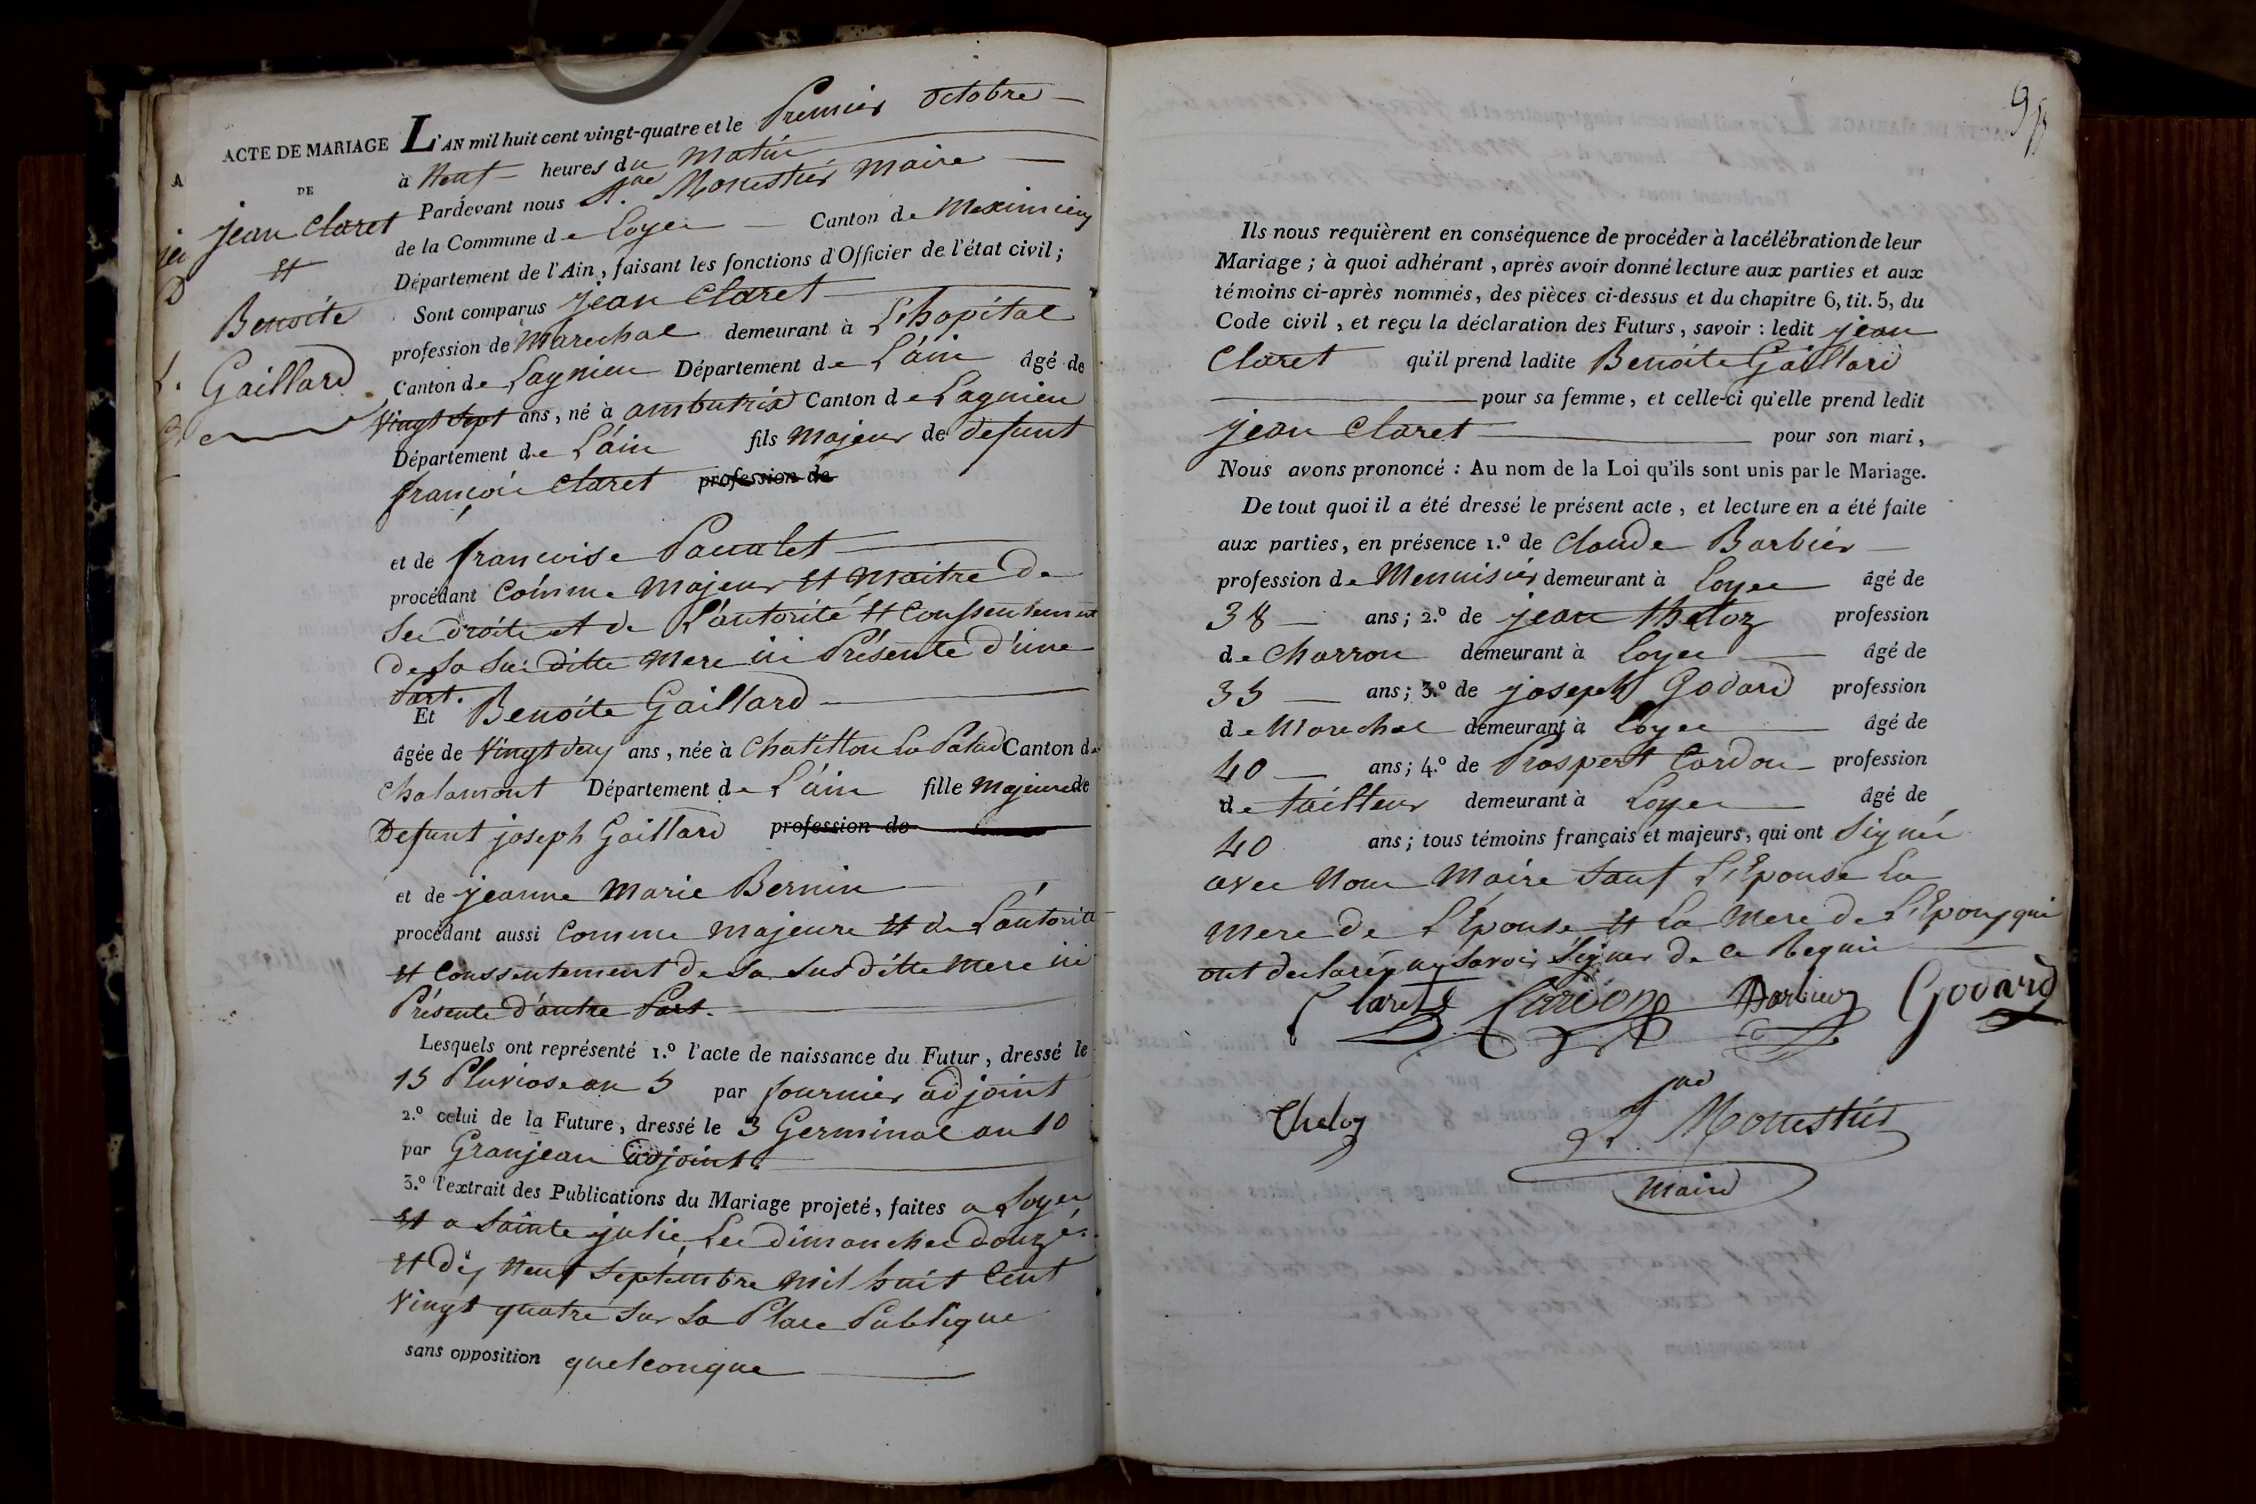 ACTE DE MARIAGE
DE
jean Claret
et
Benoite
Gaillard
L'AN mil huit cent vingt-quatre et le Premier octobre
à Neuf heures du Matin
Pardevant nous Monestier Maire
de la Commune de Loyes Canton de Meximieux
Département de l'Ain, faisant les fonctions d'Officier de l'état civil;
Sont comparus jean Claret
profession de Marechal demeurant à L'hopital
Canton de Lagnieu Département de L'ain âgé de
Vingt Sept ans, né à ambutrix Canton de Lagnieu
Département de L'ain fils Majeur de defunt
françois Claret profession de
et de francoise
procédant Comme Majeur et Maitre de
Ses droits et de L'autorité et Conssentement
de Sa Sus ditte Mere ici Présente d'une
Part.
Et Benoite Gaillard
âgée de Vingt deux ans, née à Chatillon La Palud Canton de
Chalamont Département de L'ain fille Majeure de
Defunt joseph Gaillard profession de
et de jeanne Marie Bernin
procédant aussi Comme Majeure et de L'autorité
et Conssentement de Sa Sus ditte Mere ici
Présente d'autre Part.
Lesquels ont représenté 1.º l'acte de naissance du Futur, dressé le
15 Pluviose an 5 par fournier adjoint
2.º celui de la Future, dressé le 3 Germinal an 10
par Granjean adjoint
3.º l'extrait des Publications du Mariage projeté, faites a Loyes
et a Sainte julie, Les dimanches douze
et dix Neuf Septembre Mil huit Cent
Vingt quatre Sur La Place Publique
sans opposition quelconque
Ils nous requièrent en conséquence de procéder à la célébration de leur
Mariage; à quoi adhérant, après avoir donné lecture aux parties et aux
témoins ci-après nommés, des pièces ci-dessus et du chapitre 6, tit. 5, du
Code civil, et reçu la déclaration des Futurs, savoir: ledit jean
Claret qu'il prend ladite Benoite Gaillard
pour sa femme, et celle-ci qu'elle prend ledit
jean Claret pour son mari,
Nous avons prononcé: Au nom de la Loi qu'ils sont unis par le Mariage.
De tout quoi il a été dressé le présent acte, et lecture en a été faite
aux parties, en présence 1.º de Claude Barbier
profession de Mennisier demeurant à Loyes âgé de
38 ans; 2.º de jean theloz profession
de Charron demeurant à Loyes âgé de
35 ans; 3.º de joseph Godard profession
de Marechal demeurant à Loyes âgé de
40 ans; 4.º de Prospert Cardon profession
de tailleur demeurant à Loyes âgé de
40 ans; tous témoins français et majeurs, qui ont Signés
avec Nous Maire Sauf L'Epouse La
Mere de L'Epouse et La Mere de L'Epoux qui
ont declarés ne Savoir Signer de ce Requis
Claret Cardon Barbier Godard
Theloz Monestier
Maire